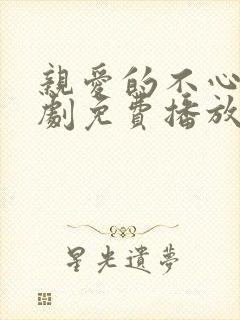 親愛的不心
劇免費播放
星光遺夢